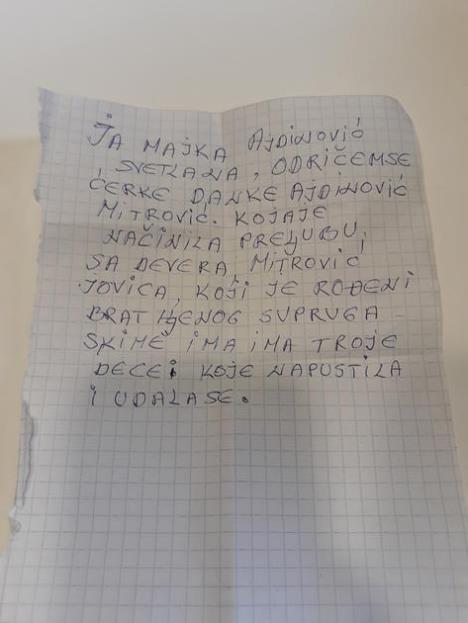 JA MAJKA AJDINOVIĆ
SVETLANA, ODRIČEMSE
ĆERKE DANKE AJDINOVIĆ
MITROVIĆ. KOJAJE
NAČINILA PRELJUBU,
SA DEVERA, MITROVIĆ
JOVICA, KOJI JE ROĐENI
BRAT NJENOG SUPRUGA
SKIME IMA IMA TROJE
DECE i KOJE NAPUSTILA
I UDALASE.